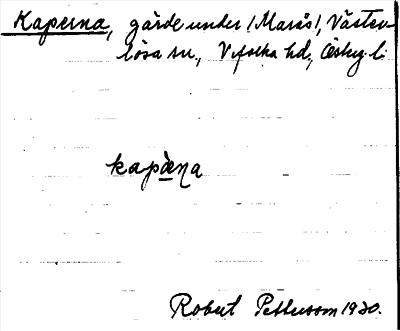 Kaperna, gärde under /Marås/, Väster-
lösa sn., Vifolka hd., Östug. l.
kapæ̀ṇa
Robert Pettersson 1930.